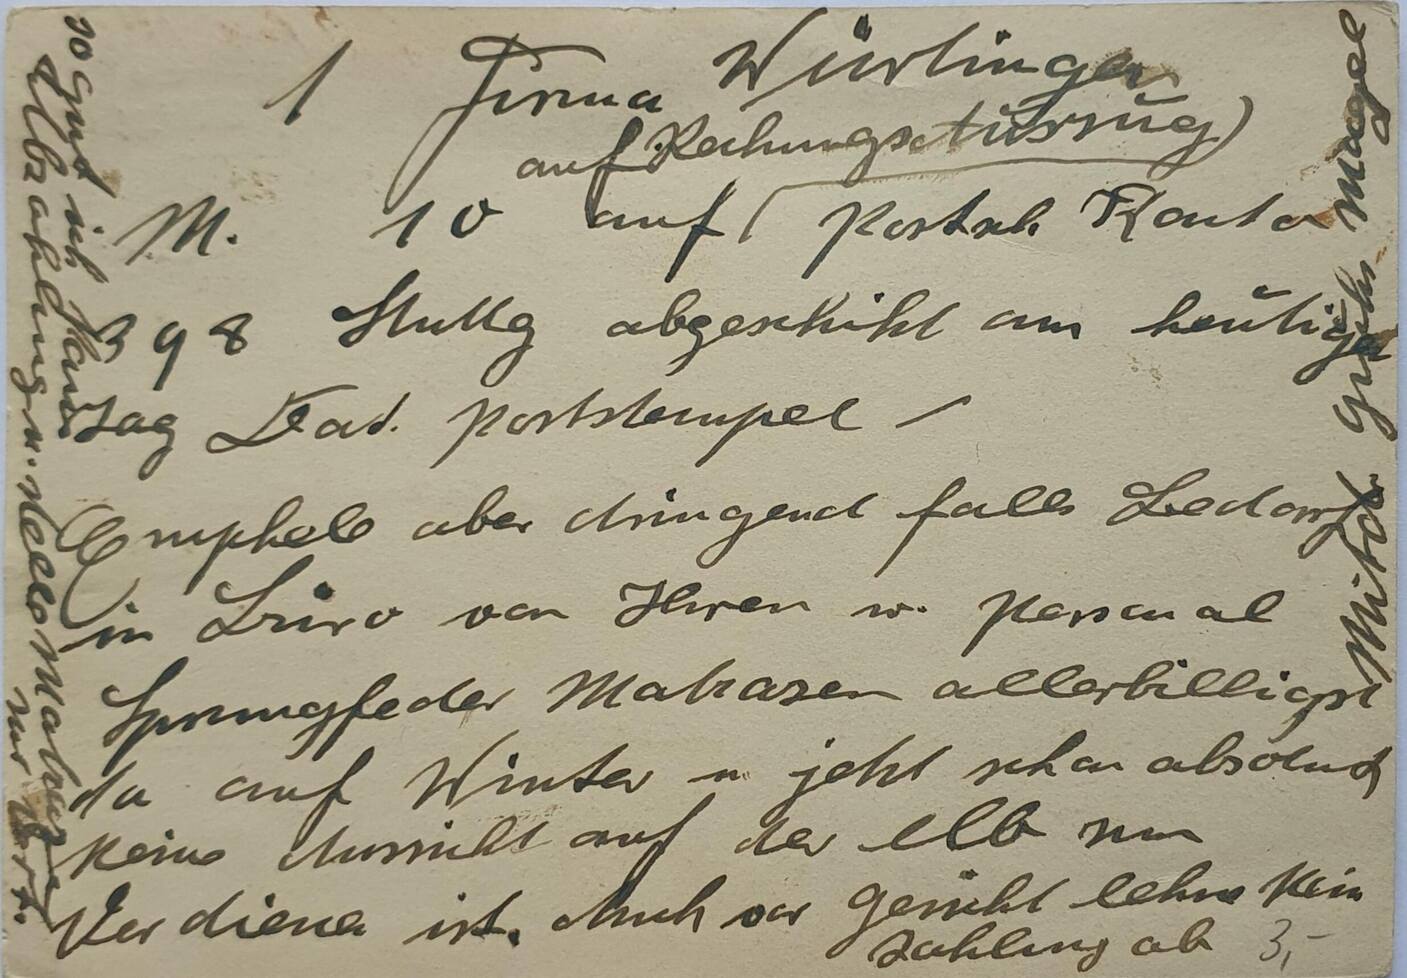 1 Firma Würlinger
auf Rechnungsauszug)
M. 10 auf Postsch Konto
398 Stuttg abgeschikt am heutigen
Tag Dat. Poststempel
Empfhele aber dringend falls Bedarf
in Büro von Ihren u. Personal
Sprungfeder Matrazen allerbilligst
da auf Winter u jetzt schon absolut
Keine Aussicht auf der Alb zum
Verdienen ist. Auch vor Gericht lehne Kein
Zahlung ab 3,-
so gut ich Kann
Abzahlung u. stelle Matraze
nur Wert.
Mitde